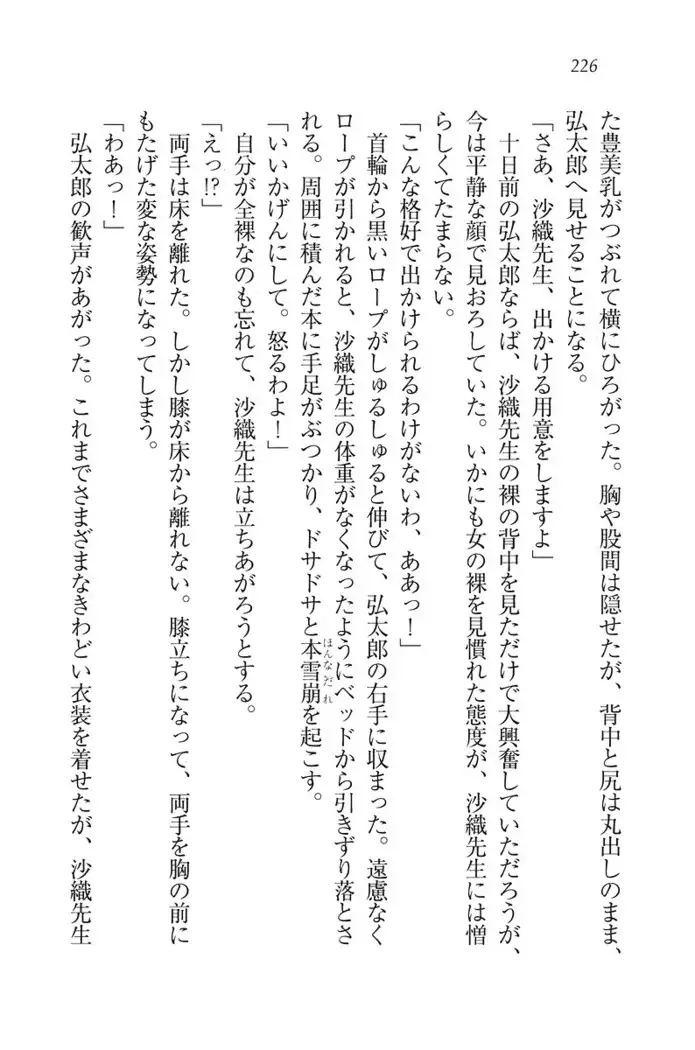 226
た豊美乳がつぶれて横にひろがった。胸や股間は隠せたが、背中と尻は丸出しのまま、
弘太郎へ見せることになる。
「さあ、沙織先生、出かける用意をしますよ」
十日前の弘太郎ならば、沙織先生の裸の背中を見ただけで大興奮していただろうが、
今は平静な顔で見おろしていた。いかにも女の裸を見慣れた態度が、沙織先生には憎
らしくてたまらない。
「こんな格好で出かけられるわけがないわ、ああっ！」
首輪から黒いロープがしゅるしゅると伸びて、弘太郎の右手に収まった。遠慮なく
ロープが引かれると、沙織先生の体重がなくなったようにベッドから引きずり落とさ
れる。周囲に積んだ本に手足がぶつかり、ドサドサと本雪崩を起こす。
ほんなだれ
「いいかげんにして。怒るわよ！」
自分が全裸なのも忘れて、沙織先生は立ちあがろうとする。
「えっ!?」
両手は床を離れた。しかし膝が床から離れない。膝立ちになって、両手を胸の前に
もたげた変な姿勢になってしまう。
「わあっ！」
弘太郎の歓声があがった。これまでさまざまなきわどい衣装を着せたが、沙織先生